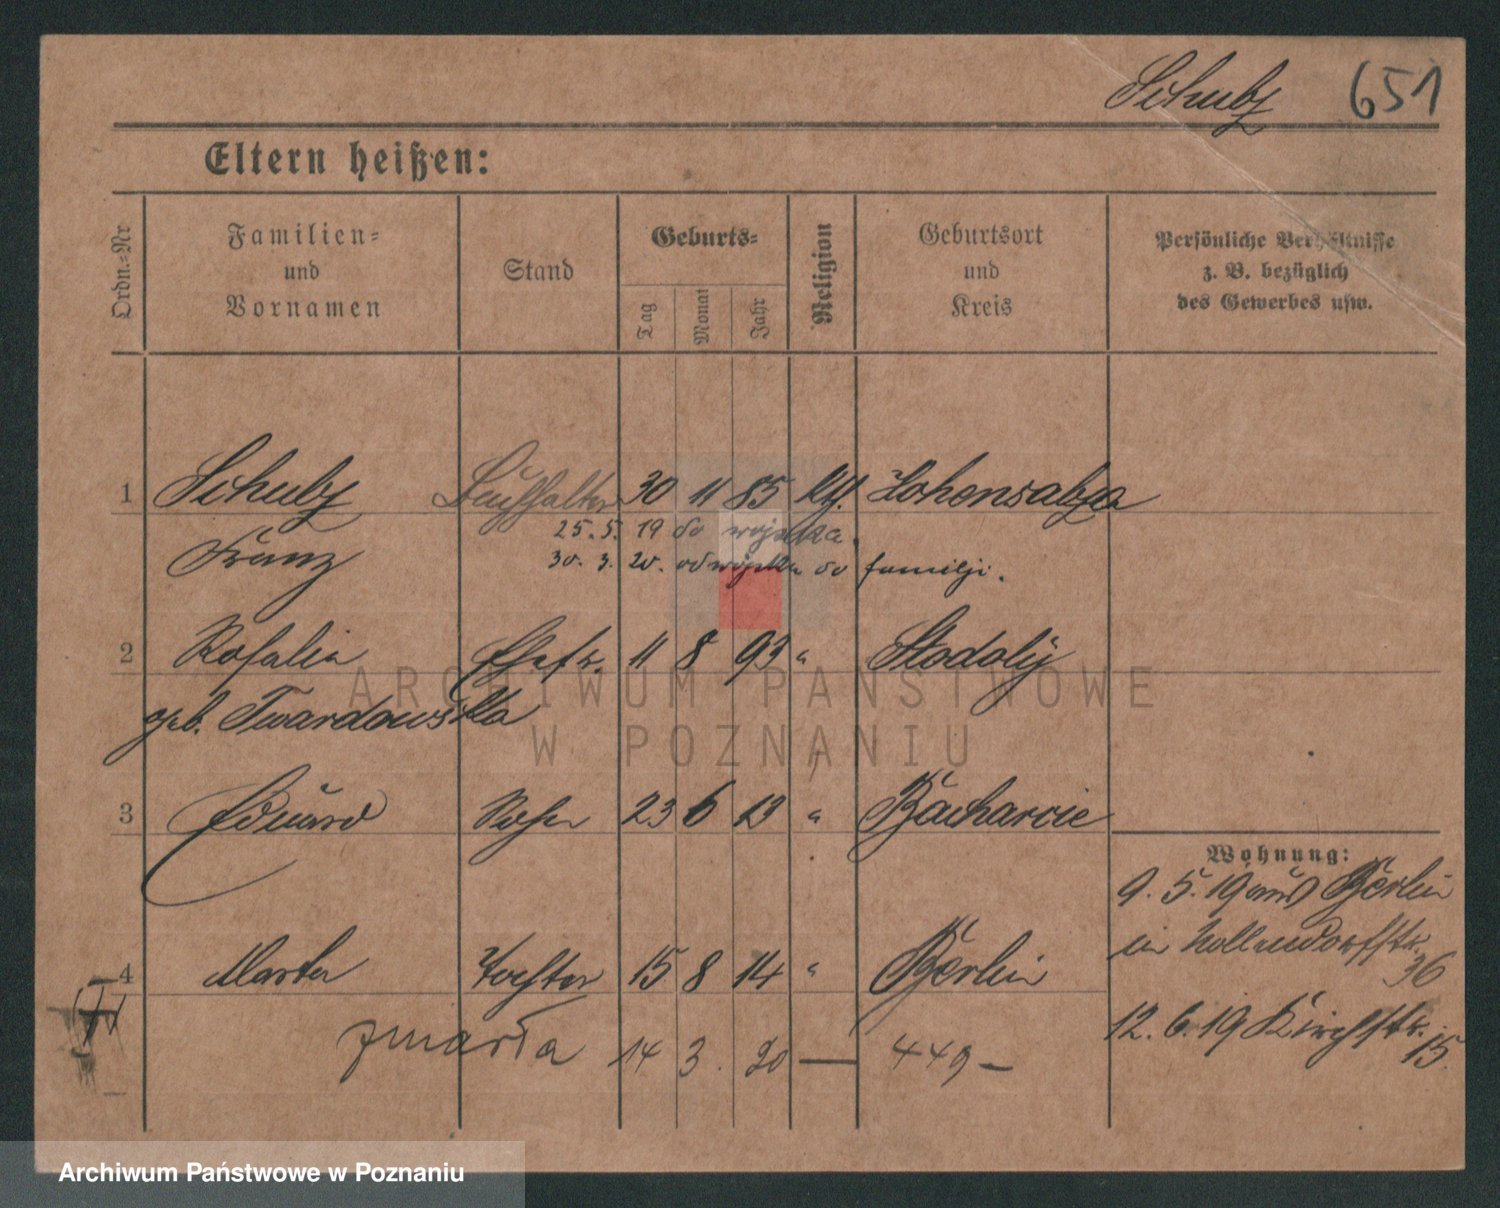 Schulz 651
Eltern heißen:
Ordn.-Nr
Familien-
und
Vornamen
Stand
Geburts-
Tag
Monat
Jahr
Religion
Geburtsort
und
Kreis
Persönliche Verhältnisse
z. B. bezüglich
des Gewerbes usw.
1 Schulz Buchhalter 30 11 85 kth. Hohensalza
25. 5. 19 do wojska.
Franz
30. 3. 20. od wojska do familji.
2 Rosalia Ehefr. 11 8 93 " Stodoly
geb. Twardowska
3 Eduard Sohn 23 6 13 "
4 Marta Tochter 15 8 14 " Berlin
zmarła 14 3. 20 — 449 —
Wohnung:
9. 5. 19 aus Berlin
in Hollendorfstr.
36
12. 6. 19 Kirchstr.
15.
ARCHIWUM PAŃSTWOWE
W POZNANIU
Archiwum Państwowe w Poznaniu